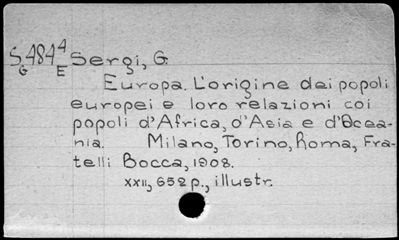 S.484⁴ Sergi, G.
G E
Europa. L'origine dei popoli
europei e loro relazioni coi
popoli d'Africa, d'Asia e d'Ocea-
nia. Milano, Torino, Roma, Fra-
telli Bocca, 1908.
XXII, 652 p., illustr.